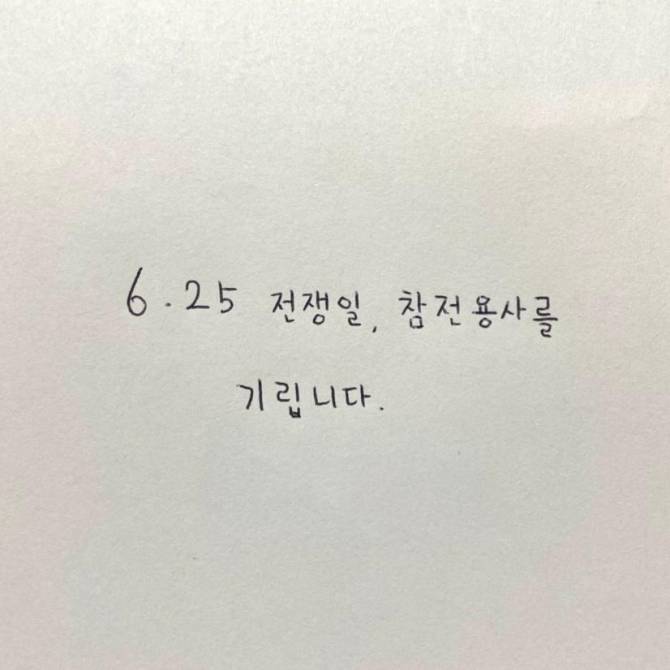 6.25 전쟁일, 참전용사를
기립니다.